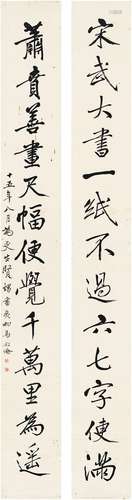 宋武大書一紙不過六七字便滿
蕭賁善畫尺幅便覺千萬里為遙
十五年八月為文生賢